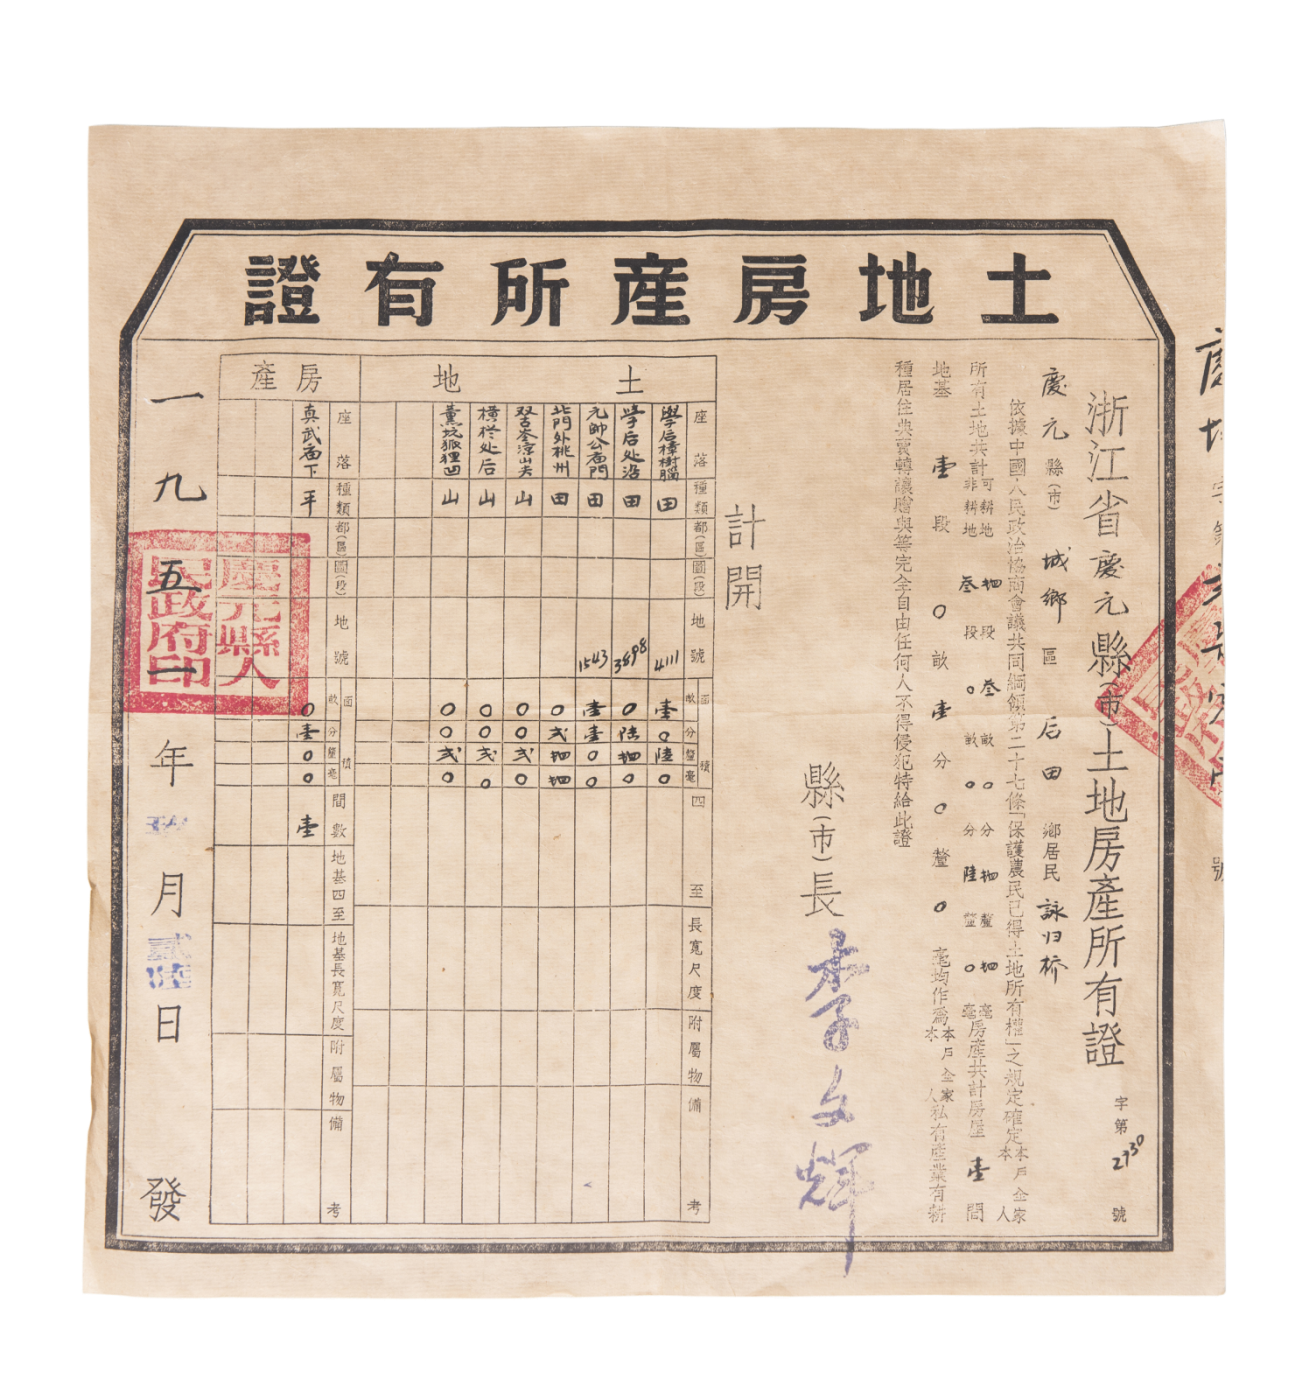 土地房產所有證
浙江省慶元縣(市)土地房產所有證 字第2730號
慶元縣(市)城鄉區后田鄉居民詠归桥
依據中國人民政治協商會議共同綱領第二十七條「保護農民已得土地所有權」之規定確定本戶全家本人
所有土地共計可耕地肆段叁畝〇分肆釐肆毫非耕地叁段〇畝〇分陸釐〇毫房產共計房屋壹間
地基壹段〇畝壹分〇釐〇毫均作爲本戶全家本人私有產業有耕
種居住典賣轉讓贈與等完全自由任何人不得侵犯特給此證
縣(市)長 李文輝
計開
土地
座落 種類 都(區) 圖(段) 地號 面積 畝 分 釐 毫 四至 長寬尺度 附屬物 備考
學后樟樹腦 田 4111 壹 〇 陸 〇
學后处沿 田 3898 〇 陸 肆 〇
元帥公庙門 田 1543 壹 壹 〇 〇
北門外桃州 田 〇 弍 肆 肆
双吉峑涼山夫 山 〇 〇 弍 〇
橫垿处后 山 〇 〇 弍 〇
薰坑狐狸凹 山 〇 〇 弍 〇
房產
座落 種類 都(區) 圖(段) 地號 面積 畝 分 釐 毫 間數 地基四至 地基長寬尺度 附屬物 備考
真武庙下 平 〇 壹 〇 〇 壹
一九五一年玖月貳拾日發
慶元縣人民政府印